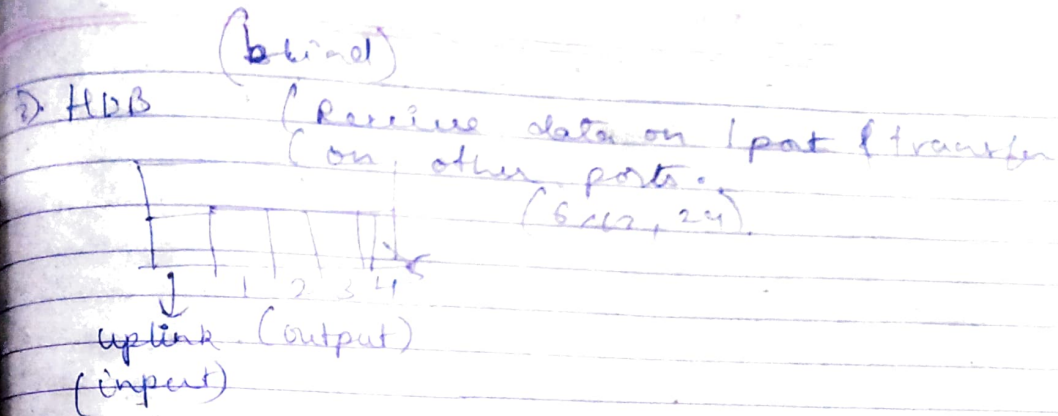 (behind)
2) HUB (Receive data on 1 port & transfer
(on other ports.
24)
1 2 3 4
uplink (output)
(input)